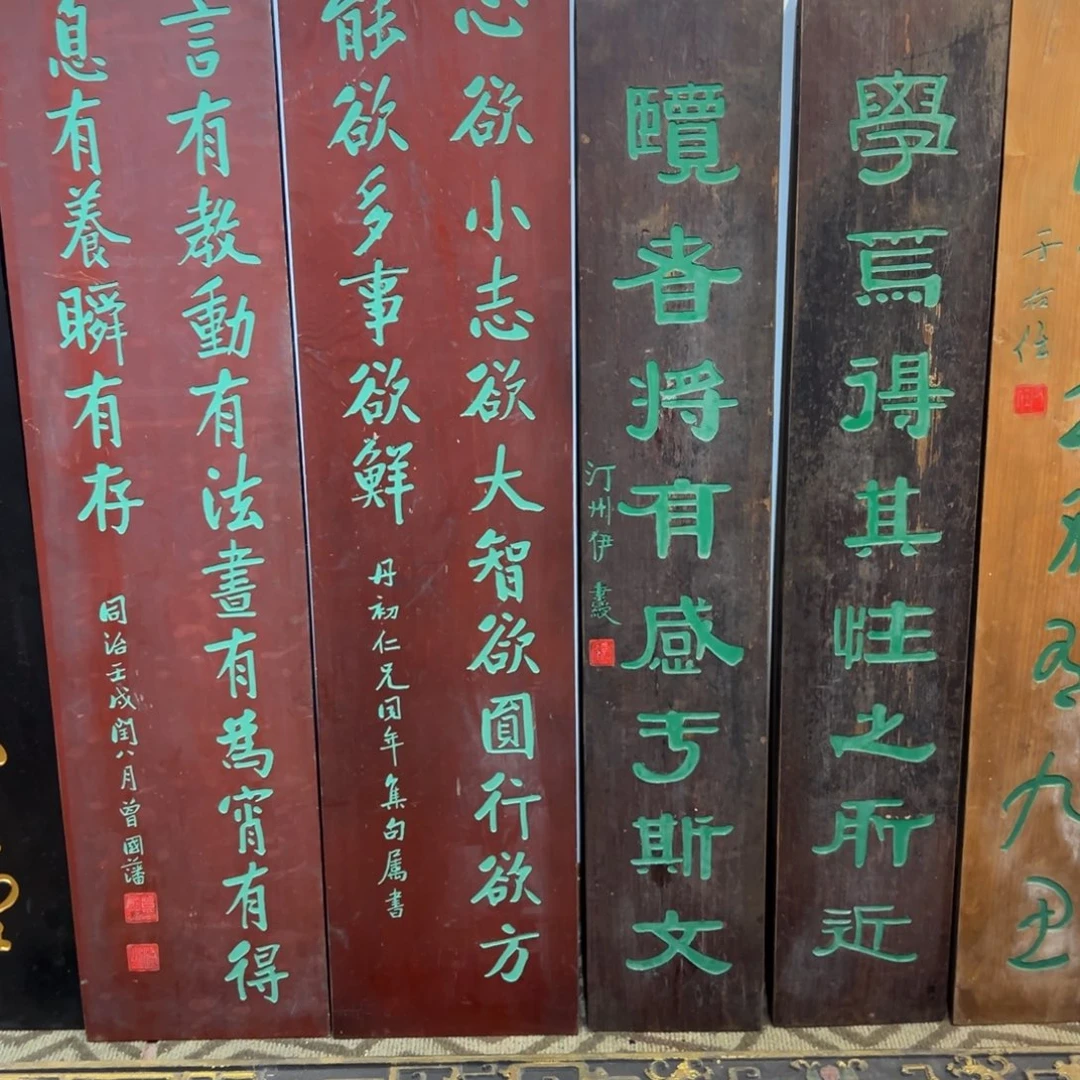 于右任
學焉得其性之所近
覽者將有感于斯文
汀州伊秉綬
心欲小志欲大智欲圓行欲方
能欲多事欲鮮
丹初仁兄同年集句屬書
言有教動有法晝有為宵有得
息有養瞬有存
同治壬戌閏八月曾國藩